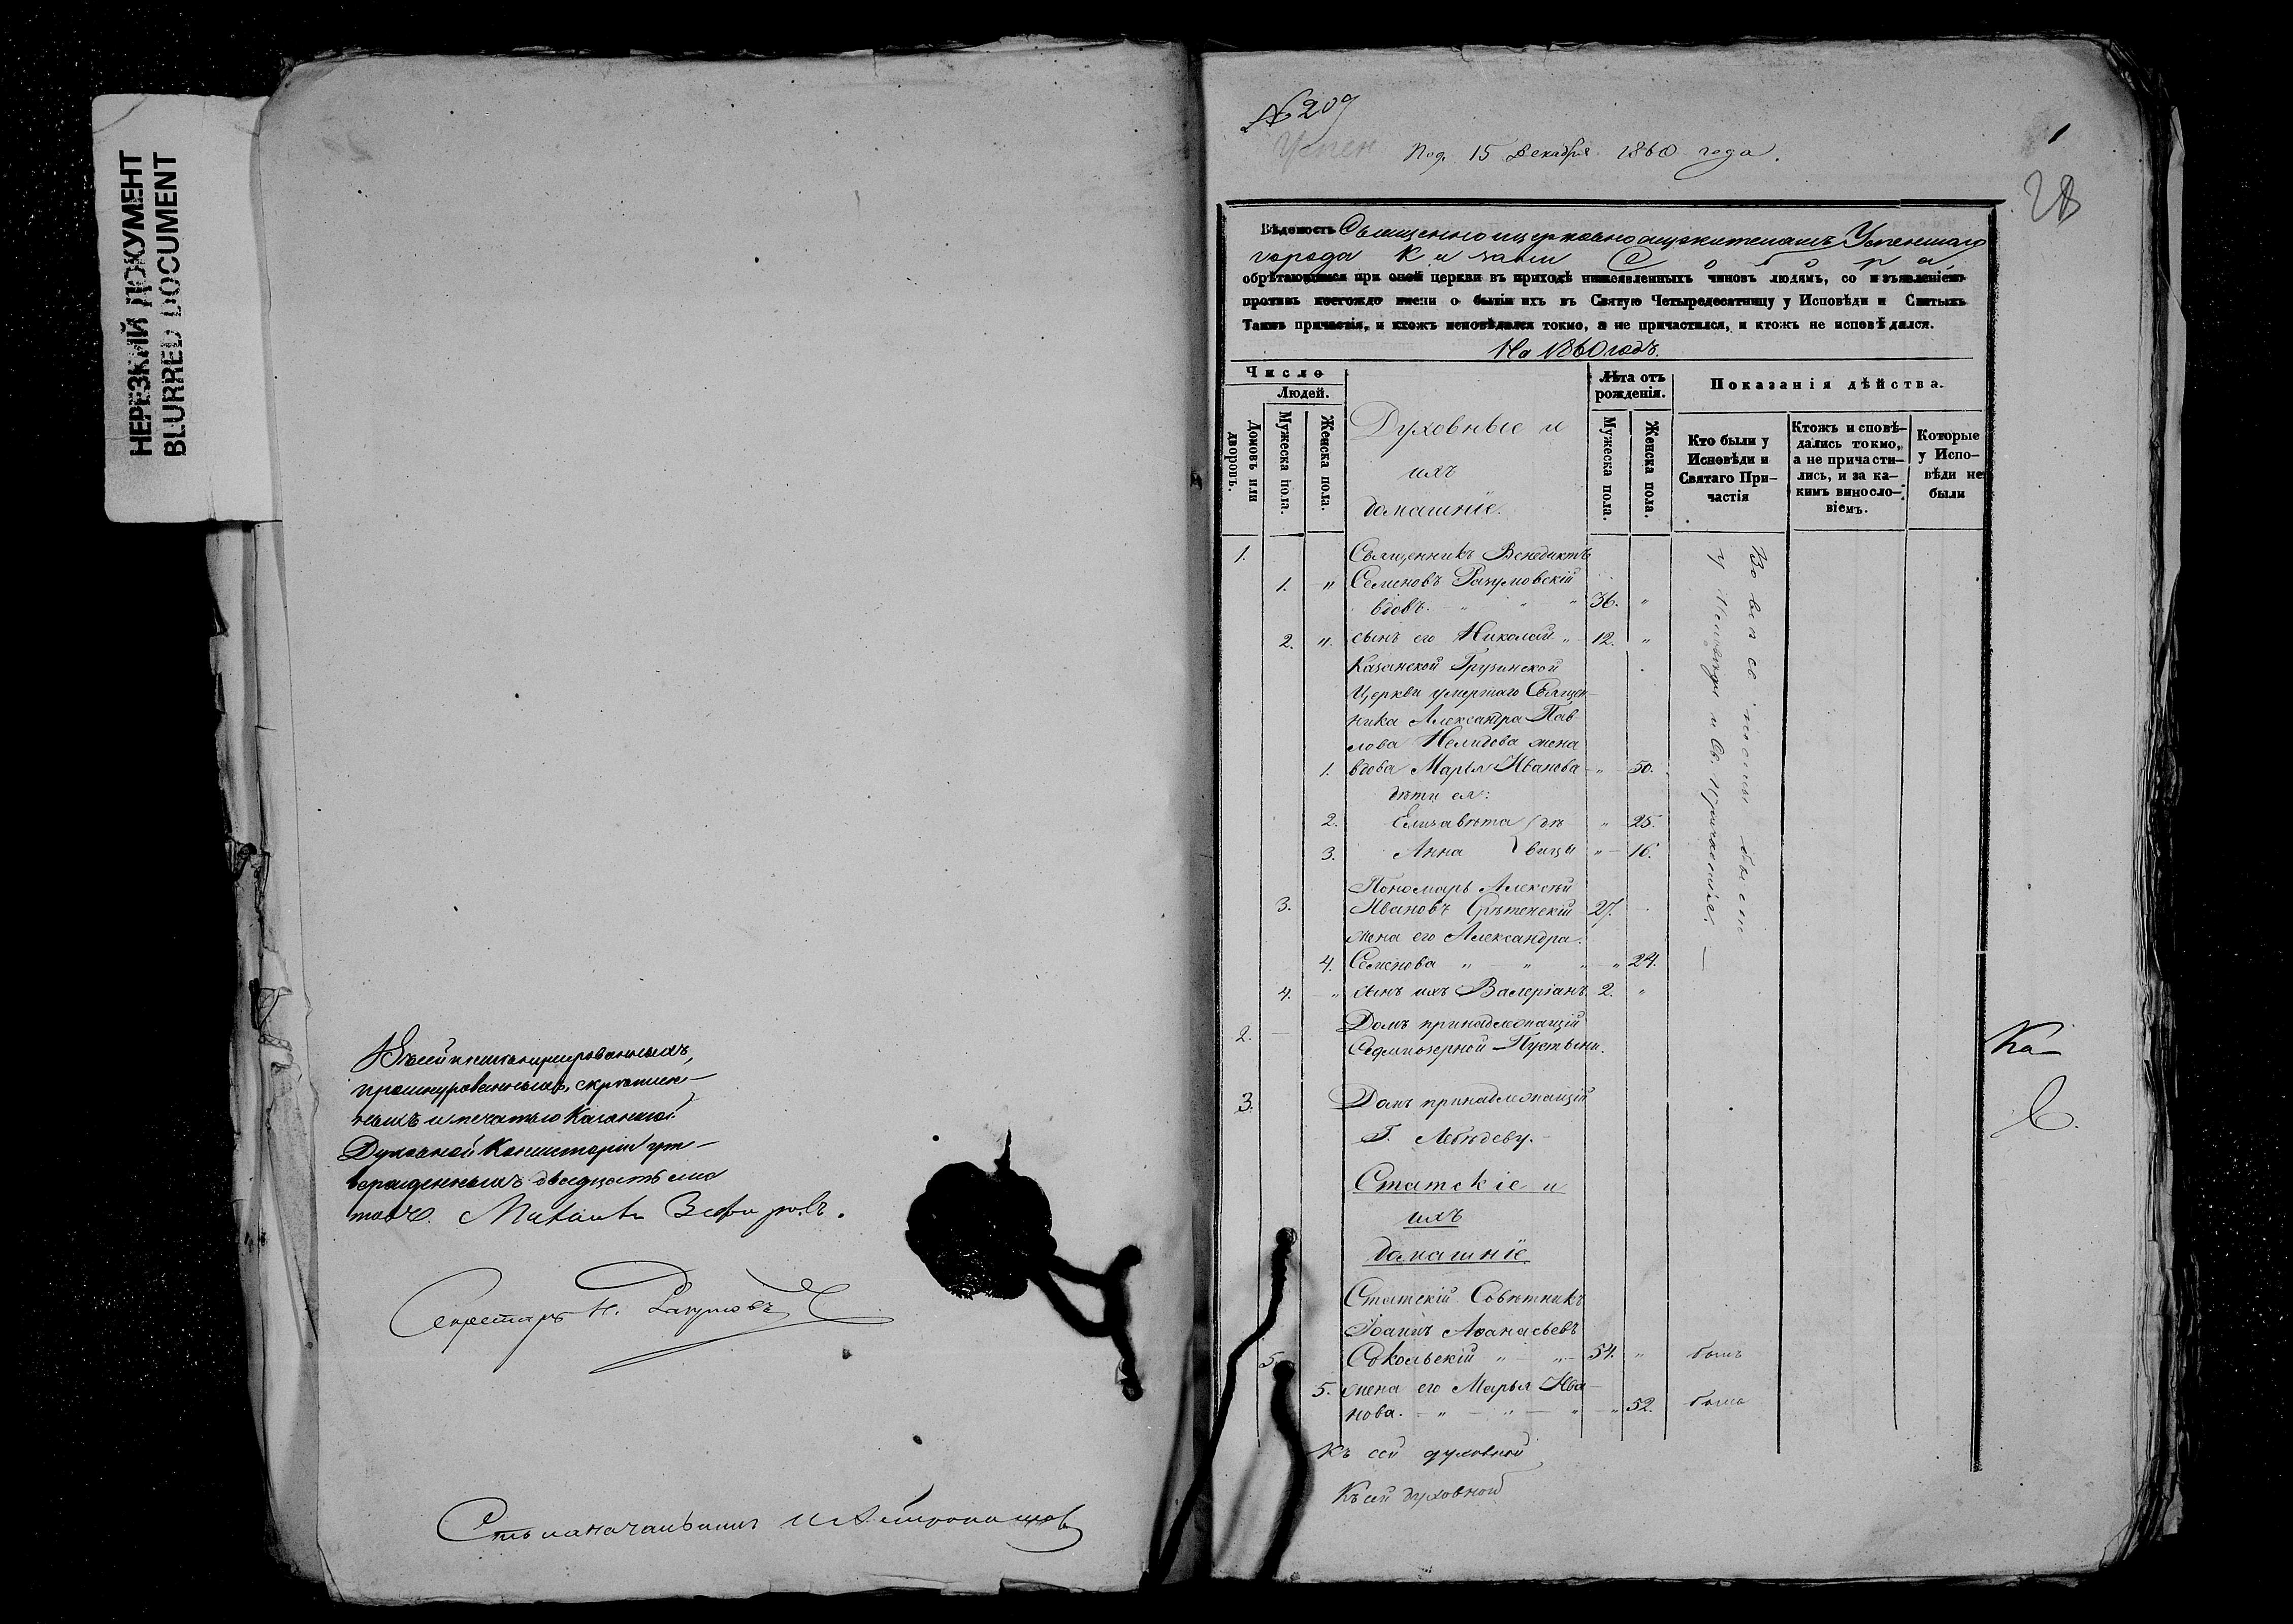 НЕРЕЗКИЙ ДОКУМЕНТ
BLURRED DOCUMENT
Въ сей книге нумерованныхъ,
прошнурованныхъ, скрѣплен-
ныхъ и печатью Казанской
Духовной Консисторіи ут-
вержденныхъ двадцать
листовъ.
Секретарь Н. Разумовъ
Столоначальникъ
№ 209
Успен
Под. 15 Декабря 1860 года.
1
28
Вѣдомость Священноицерковнослужителямъ Успенскаго
города Казани Собора,
обрѣтающимся при оной церкви въ приходѣ нижеявленныхъ чиновъ людямъ, со изъявленіемъ
противъ коегождо имени о бытіи ихъ въ Святую Четыредесятницу у Исповѣди и Святыхъ
Таинъ причастія, и ктожъ исповѣдался токмо, а не причастился, и ктожъ не исповѣдался.
На 1860 годъ.
Число
Людей.
Домовъ или дворовъ.
Мужеска пола.
Женска пола.
Духовные и
ихъ
домашніе.
Лѣта отъ рожденія.
Мужеска пола.
Женска пола.
Показанія дѣйства.
Кто были у Исповѣди и Святаго Причастія
Ктожъ исповѣ-
дались токмо,
а не причасти-
лись, и за ка-
кимъ винosло-
віемъ.
Которые
у Испо-
вѣди не
были
1. Священникъ Венедиктъ
1. " Семеновъ Разумовскій
вдовъ. " " " 36. "
2. " сынъ его Николай " 12. "
Казанской Грузинской
Церкви умершаго Священ-
ника Александра Пав
лова Нелидова жена
1. вдова Марья Иванова " 50.
дѣти ея:
2. Елизавета дѣ " 25.
3. Анна вицы " 16.
Пономарь Алексѣй
3. Ивановъ Срѣтенскій 27.
жена его Александра
4. Семенова " " " " 24.
4. " сынъ ихъ Валеріанъ 2. "
Во вся св. посты были
у Исповѣди и Св. Причастія. —
2. Домъ принадлежащій
Седмиозерной Пустыни.
3. Домъ принадлежащій
Г. Лебедеву.
Ка-
Статскіе и
ихъ
домашніе
Статскій Совѣтникъ
Іоаннъ Аѳанасьевъ
5. Сокольскій " " 54. " былъ
5. жена его Марья Ива-
нова. " " " " 52. была
Къ сей духовной
Къ сей духовной